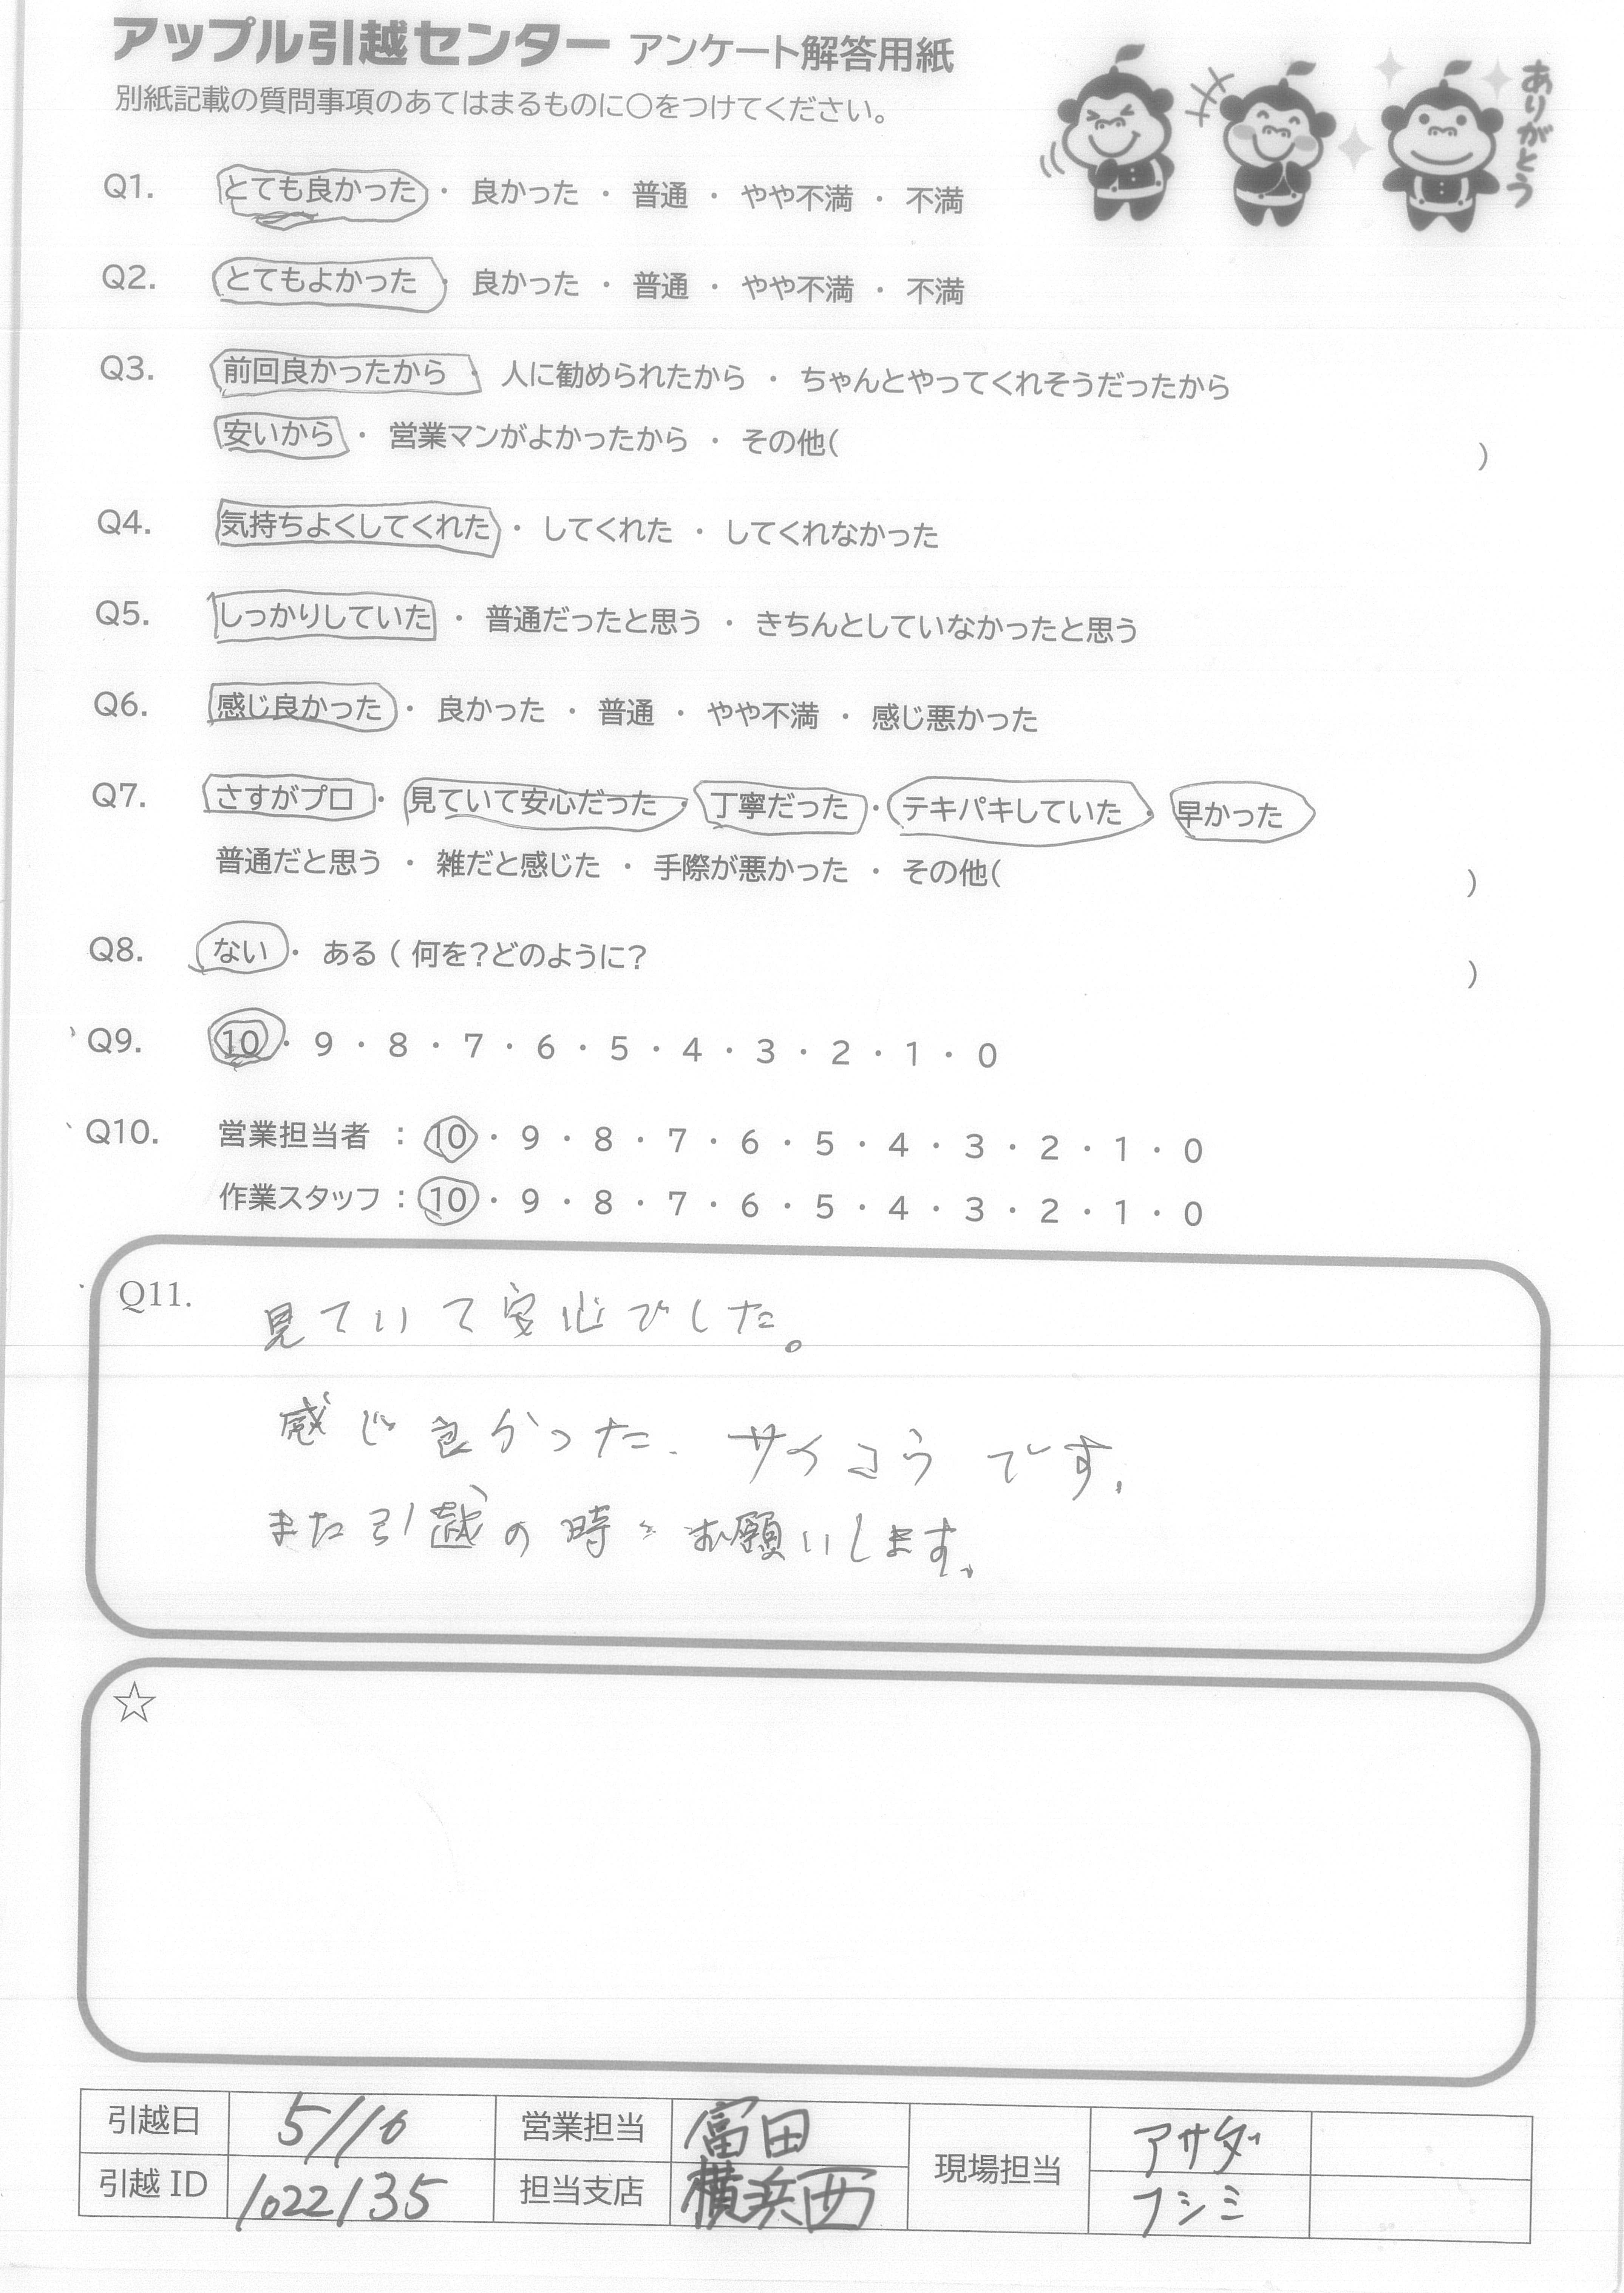 アップル引越センター アンケート解答用紙
ありがとう
別紙記載の質問事項のあてはまるものに○をつけてください。
Q1. とても良かった ・ 良かった ・ 普通 ・ やや不満 ・ 不満
Q2. とてもよかった ・ 良かった ・ 普通 ・ やや不満 ・ 不満
Q3. 前回良かったから ・ 人に勧められたから ・ ちゃんとやってくれそうだったから
安いから ・ 営業マンがよかったから ・ その他( )
Q4. 気持ちよくしてくれた ・ してくれた ・ してくれなかった
Q5. しっかりしていた ・ 普通だったと思う ・ きちんとしていなかったと思う
Q6. 感じ良かった ・ 良かった ・ 普通 ・ やや不満 ・ 感じ悪かった
Q7. さすがプロ ・ 見ていて安心だった ・ 丁寧だった ・ テキパキしていた ・ 早かった
普通だと思う ・ 雑だと感じた ・ 手際が悪かった ・ その他( )
Q8. ない ・ ある ( 何を?どのように? )
Q9. 10 ・ 9 ・ 8 ・ 7 ・ 6 ・ 5 ・ 4 ・ 3 ・ 2 ・ 1 ・ 0
Q10. 営業担当者 : 10 ・ 9 ・ 8 ・ 7 ・ 6 ・ 5 ・ 4 ・ 3 ・ 2 ・ 1 ・ 0
作業スタッフ : 10 ・ 9 ・ 8 ・ 7 ・ 6 ・ 5 ・ 4 ・ 3 ・ 2 ・ 1 ・ 0
Q11. 見ていて安心でした。
感じ良かった、サイコウです。
また引越の時、お願いします。
☆
引越日 5/10 営業担当 富田 現場担当 アサダ
引越 ID 1022135 担当支店 横浜西 フシミ